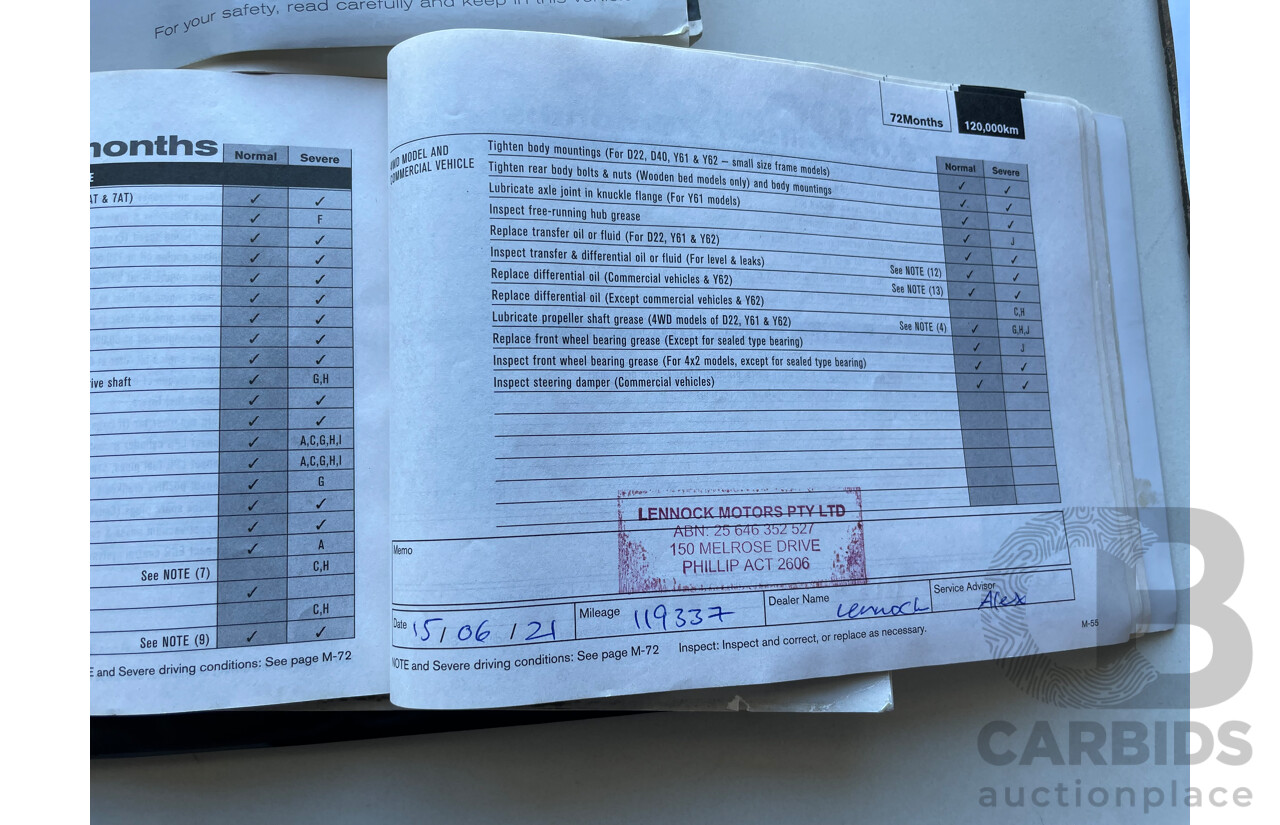 For your safety, read carefully and keep in this vehicle
months
Normal Severe
AT & 7AT)
✓ ✓
✓ F
✓ ✓
✓ ✓
✓ ✓
✓ ✓
✓ ✓
✓ ✓
✓ ✓
ive shaft ✓ G,H
✓ ✓
✓ ✓
✓ A,C,G,H,I
✓ A,C,G,H,I
✓ G
✓ ✓
✓ ✓
✓ A
See NOTE (7) C,H
✓
C,H
See NOTE (9) ✓ ✓
E and Severe driving conditions: See page M-72
72Months 120,000km
4WD MODEL AND
COMMERCIAL VEHICLE
Normal Severe
Tighten body mountings (For D22, D40, Y61 & Y62 – small size frame models) ✓ ✓
Tighten rear body bolts & nuts (Wooden bed models only) and body mountings ✓ ✓
Lubricate axle joint in knuckle flange (For Y61 models) ✓ ✓
Inspect free-running hub grease ✓ J
Replace transfer oil or fluid (For D22, Y61 & Y62) ✓ ✓
Inspect transfer & differential oil or fluid (For level & leaks) See NOTE (12) ✓ ✓
Replace differential oil (Commercial vehicles & Y62) See NOTE (13) ✓ ✓
Replace differential oil (Except commercial vehicles & Y62) C,H
Lubricate propeller shaft grease (4WD models of D22, Y61 & Y62) See NOTE (4) ✓ G,H,J
Replace front wheel bearing grease (Except for sealed type bearing) ✓ J
Inspect front wheel bearing grease (For 4x2 models, except for sealed type bearing) ✓ ✓
Inspect steering damper (Commercial vehicles) ✓ ✓
Memo
LENNOCK MOTORS PTY LTD
ABN: 25 646 352 527
150 MELROSE DRIVE
PHILLIP ACT 2606
Date 15/06/21 Mileage 119337 Dealer Name Lennock Service Advisor Alex
NOTE and Severe driving conditions: See page M-72 Inspect: Inspect and correct, or replace as necessary.
M-55
CARBIDS
auctionplace